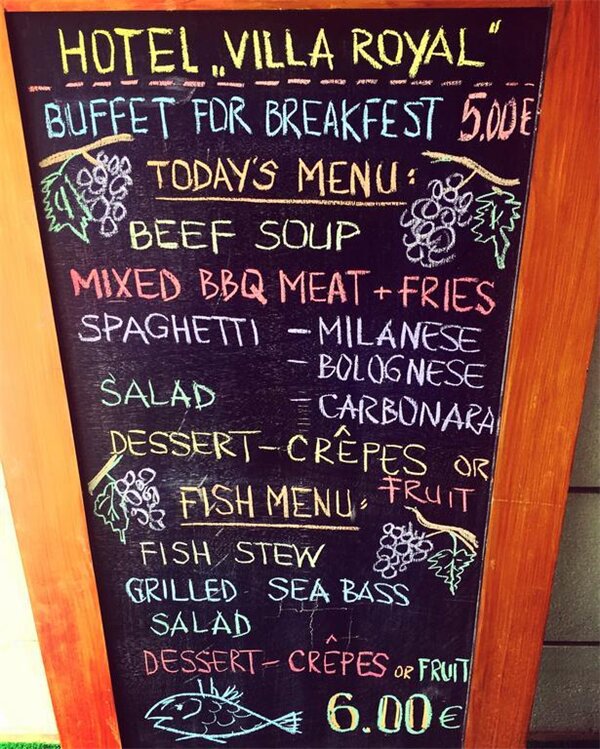 HOTEL „VILLA ROYAL“
BUFFET FOR BREAKFEST 5.00€
TODAY'S MENU:
BEEF SOUP
MIXED BBQ MEAT + FRIES
SPAGHETTI - MILANESE
- BOLOGNESE
SALAD - CARBONARA
DESSERT - CRÊPES OR
FRUIT
FISH MENU:
FISH STEW
GRILLED SEA BASS
SALAD
DESSERT - CRÊPES OR FRUIT
6.00€